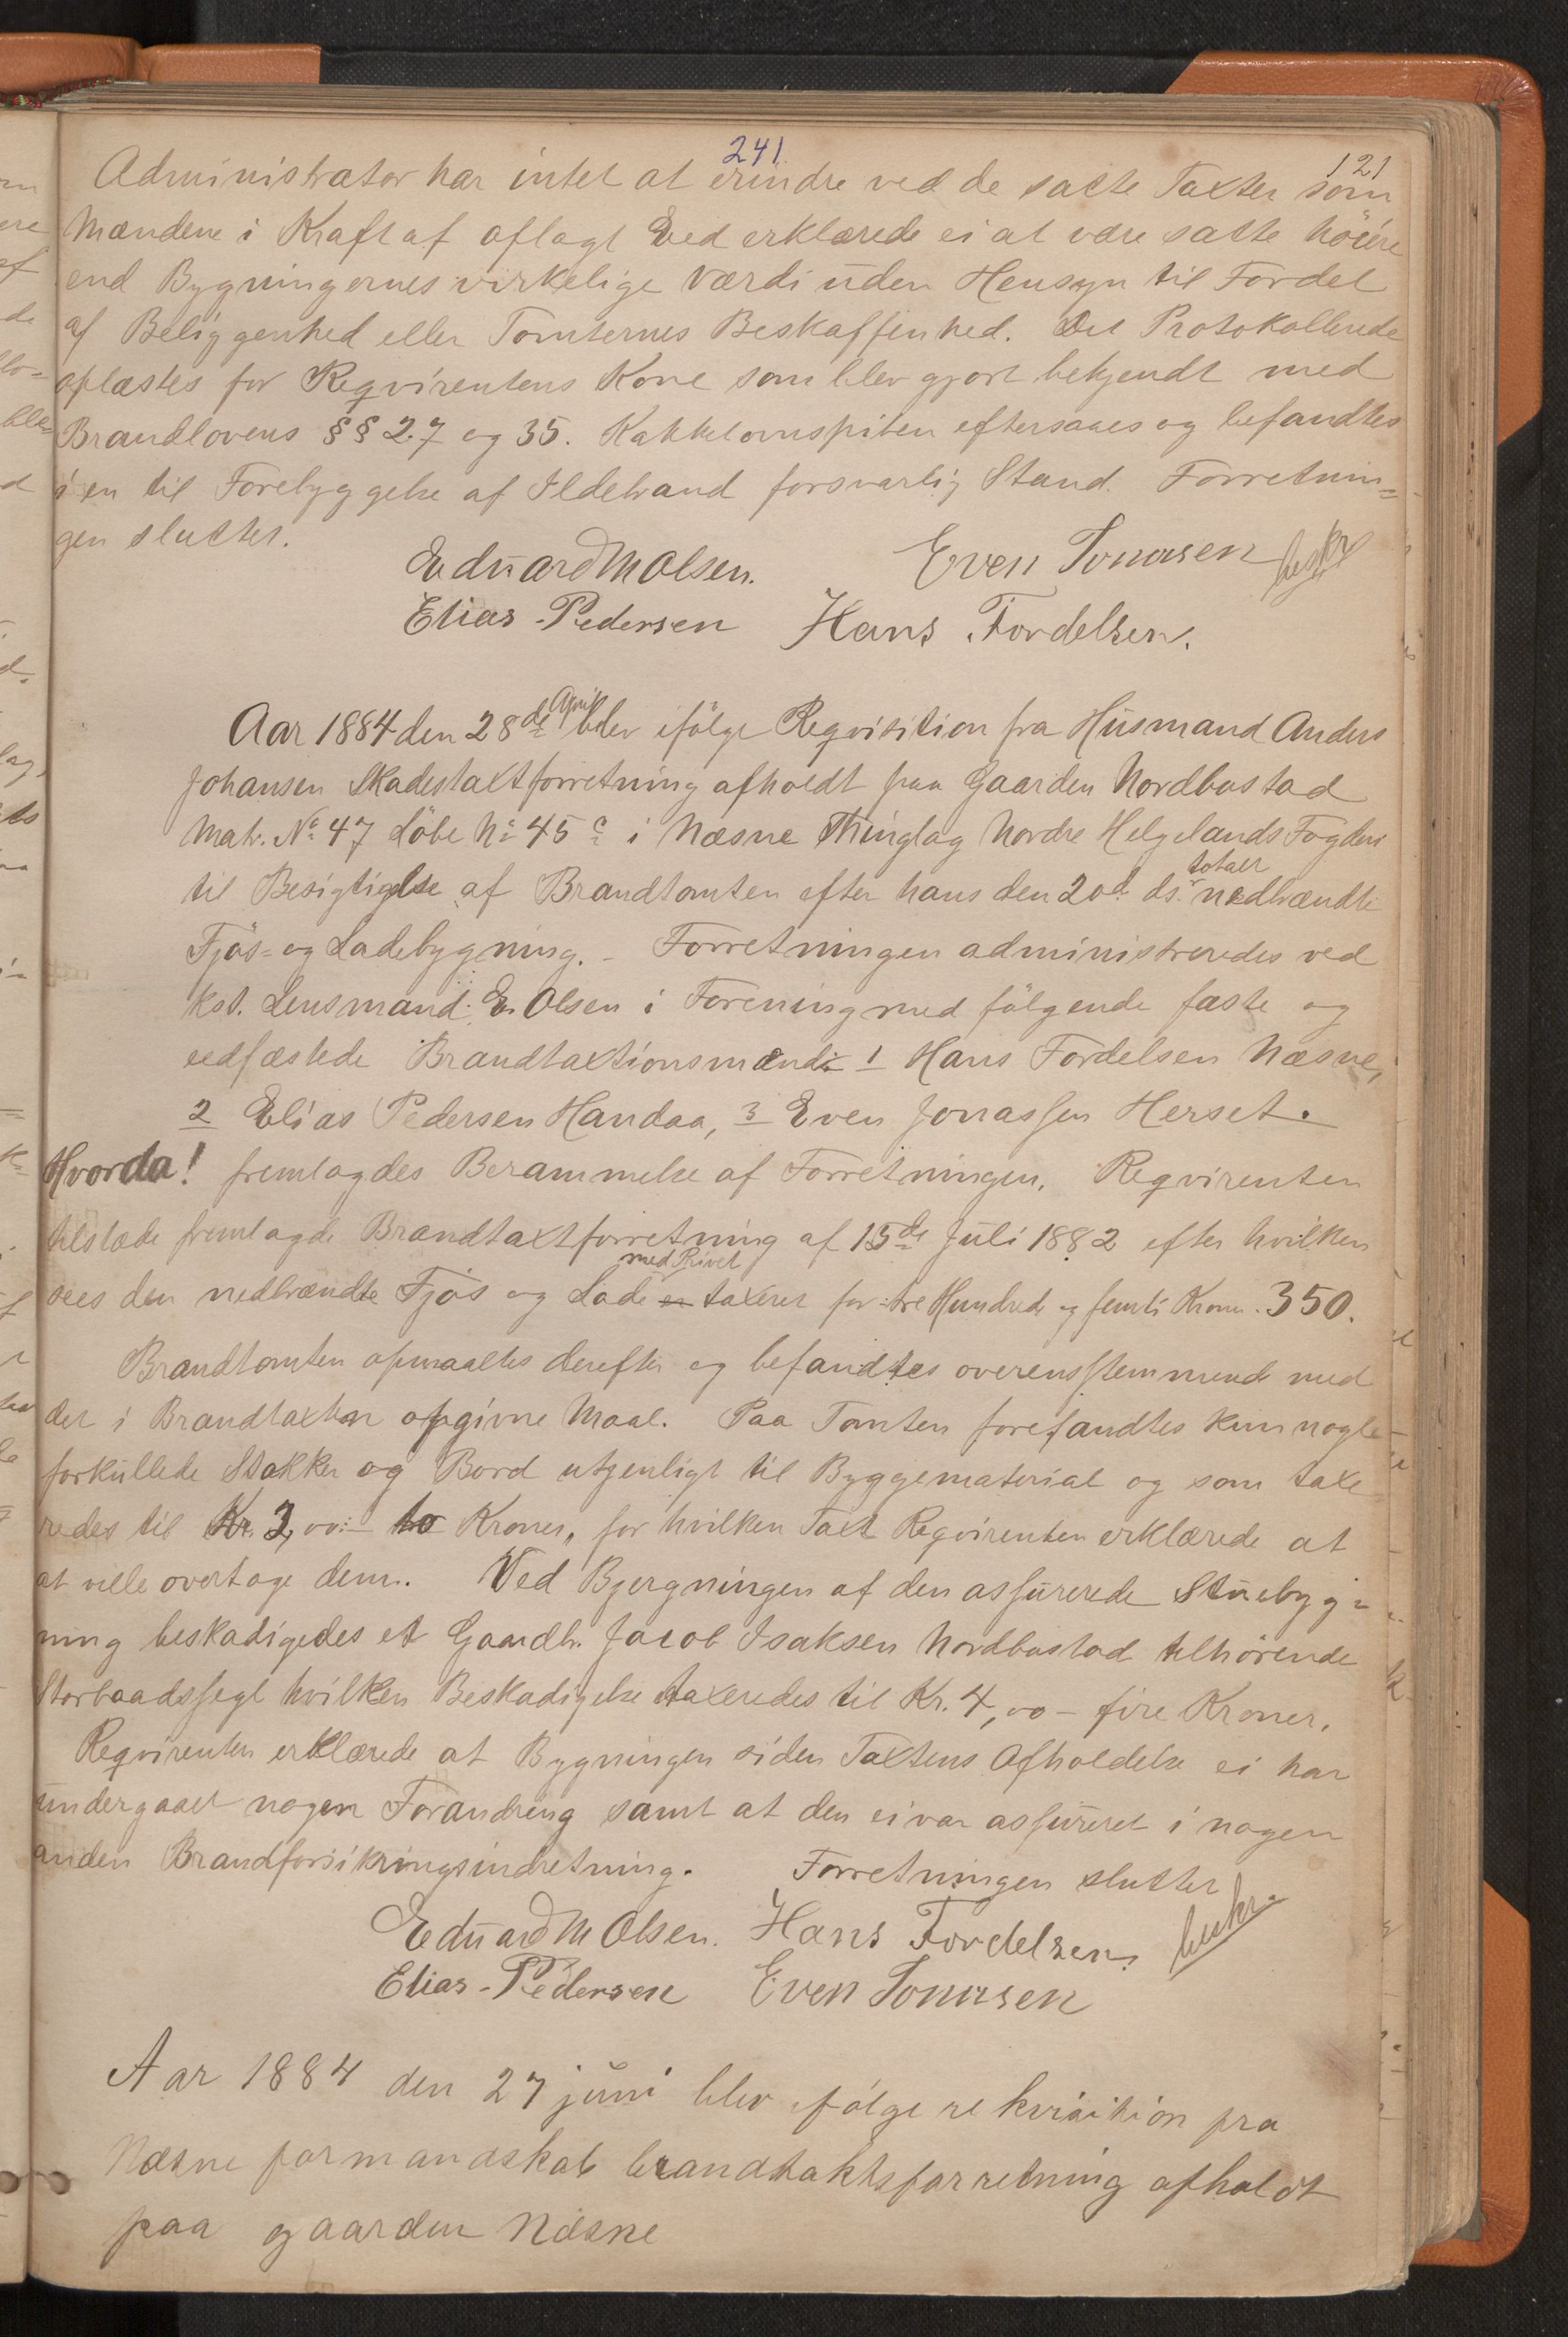 241.
121
Administrator har intet at erindre ved de satte Taxter som
Mændene i Kraft af aflagt Eed erklærede ei at være satte höiere
end Bygningernes virkelige Værdi uden Hensyn til Fordel
af Beliggenhed eller Tomternes Beskaffenhed. Det Protokollerede
oplæstes for Reqvirentens Kone som blev gjort bekjendt med
Brandlovens §§ 27 og 35. Kakkelovnspiben eftersaaes og befandtes
i en til Forebyggelse af Ildebrand forsvarlig Stand. Forretnin=
gen sluttet.
Eduard M Olsen. Even Jonassen
Elias Pedersen Hans Fordelsen.
Aar 1884 den 28de April blev ifölge Reqvisition fra Husmand Anders
Johansen Skadestaxtforretning afholdt paa Gaarden Nordbostad
Matr. No 47 Löbe No 45 c i Næsne Thinglag Nordre Helgelands Fogderi
til Besigtigelse af Brandtomten efter hans den 20d ds. totalt nedbrændte
Fjös- og Ladebygning. - Forretningen administreredes ved
kst. Lensmand E. Olsen i Forening med fölgende faste og
eedfæstede Brandtaxtionsmænd: 1 Hans Fordelsen Næsne,
2 Elias Pedersen Handaa, 3 Even Jonassen Herset.
Hvorda! fremlagdes Berammelse af Forretningen. Reqvirenten
tilstede fremlagde Brandtaxtforretning af 15de Juli 1882 efter hvilken
sees den nedbrændte Fjös og Lade med Rivet er taxeret for tre Hundrede og femti Kroner. 350.
Brandtomten opmaaltes derefter og befandtes overensstemmende med
det i Brandtaxten opgivne Maal. Paa Tomten forefandtes kun nogle
forkullede Stokker og Bord utjenligt til Byggematerial og som taxe
redes til Kr. 2,00 - to Kroner, for hvilken Taxt Reqvirenten erklærede at
at ville overtage dem. Ved Bjergningen af den assurerede Stuebyg=
ning beskadigedes et Gaardbr. Jacob Isaksen Nordbostad tilhörende
Storbaadssegl hvilken Beskadigelse taxeredes til Kr. 4,00 - fire Kroner.
Reqvirenten erklærede at Bygningen siden Taxtens Afholdelse ei har
undergaaet nogen Forandring samt at den ei var assureret i nogen
anden Brandforsikringsindretning. Forretningen sluttet
Eduard M Olsen. Hans Fordelsen.
Elias Pedersen Even Jonasen
Aar 1884 den 27 juni blev ifölge rekvisition fra
Næsne formandskab brandtakstforretning afholdt
paa gaarden Næsne